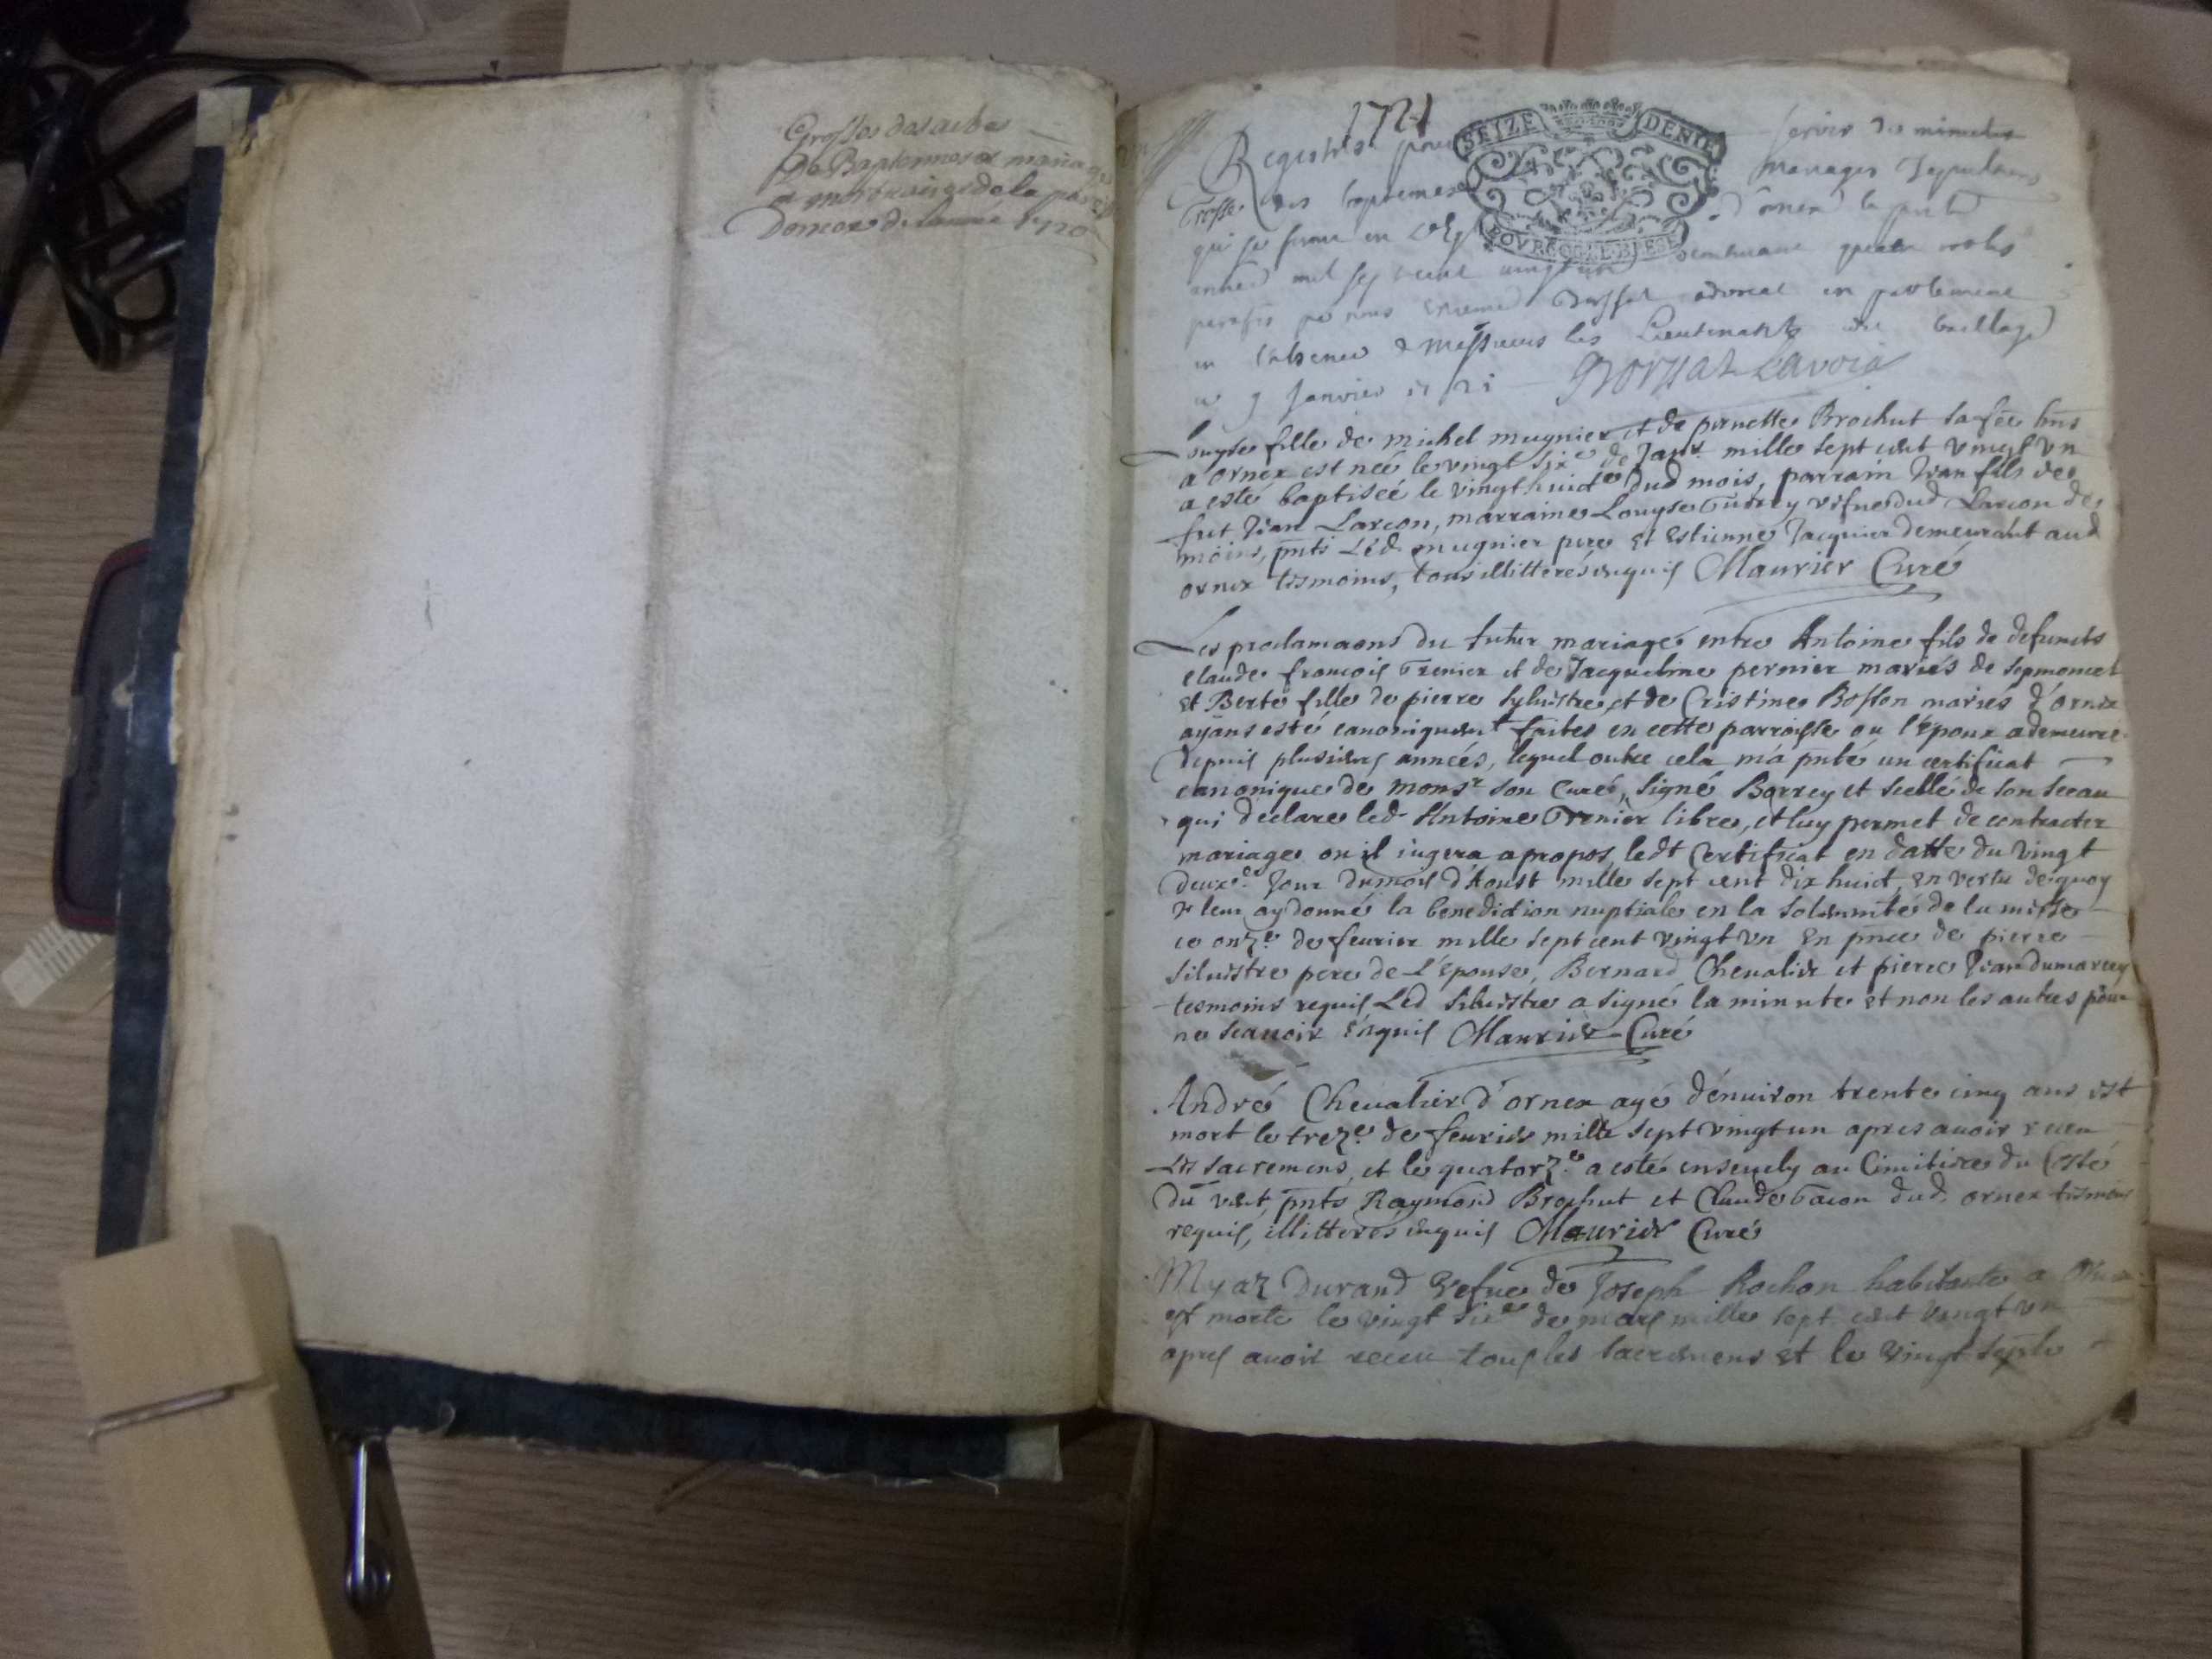 Grosses des actes
De Baptesmes et mariages
et mortuaires de la
Dornex de lannée 1720
1721
SEIZE DENIE
BOVRGOG.E.BRESSE
Registre pour servir de minutes
Grosse des baptemes mariages sepultures
qui se feront en d'ornex la presente
année mil sept cent vingt un contenant quatre rolles
parafés par nous advocat en parlement
en l'absence de Messieurs les Lieutenants du baillage
ce 9 Janvier 1721
Louyse fille de michel mugnier et de pernette Brochut sa fée
a ornex est née le vingt sixe de Janvr mille sept cent vingt vn
a esté baptiseé le vingt huicte dud mois, parrain Jean fils de
fut Jean Larcon, marraine Louyse vefue dud Larcon de
moins, pnts Led. mugnier pere et Estienne Jacquier demeurant aud
ornex tesmoins, tous illitterés enquis Maurier Curé
Les proclamaons du futur mariage entre Antoine fils de defuncts
claude francois Grenier et de Jacqueline pernier mariés de Sepmoncel
et Berte fille de pierre Syluestre, et de Cristine Bosson mariés d'ornex
ayans esté canoniquemt faites en cette parroisse ou l'époux a demeuré
depuis plusieurs années, lequel outre cela m'a pnté un certificat
canonique de monsr son curé, signé Barrey et scellé de son sceau
qui declare led. Antoine Grenier libre, et luy permet de contracter
mariage ou il iugera a propos, ledt Certificat en datte du vingt
deuxe. Jour du mois d'Aoust mille sept cent dix huict, en vertu de quoy
Je leur ay donné la benediction nuptiale en la solemnité de la messe
ce onze. de feurier mille sept cent vingt vn En pnce de pierre
Siluestre pere de L'épouse, Bernard Cheualier et pierre Jean dumarcey
tesmoins requis, Led Siluestre a signé la minute et non les autres pour
ne scauoir enquis Maurier Curé
André Cheualier d'ornex agé d'enuiron trente cinq ans est
mort le treze. de feurier mille sept vingt un apres auoir receu
Les sacremens, et le quatorze. a esté enseuely au Cimitiere du Costé
du vent, pnts Raymond Brochut et Claude bacon dud. ornex tesmoins
requis, illitterés enquis Maurier Curé
Myaz Durand Vefue de Joseph Rochon habitante a
est morte le vingt sixe de mars mille sept cent vingt vn
apres auoir receu tous les sacremens et le vingt septe